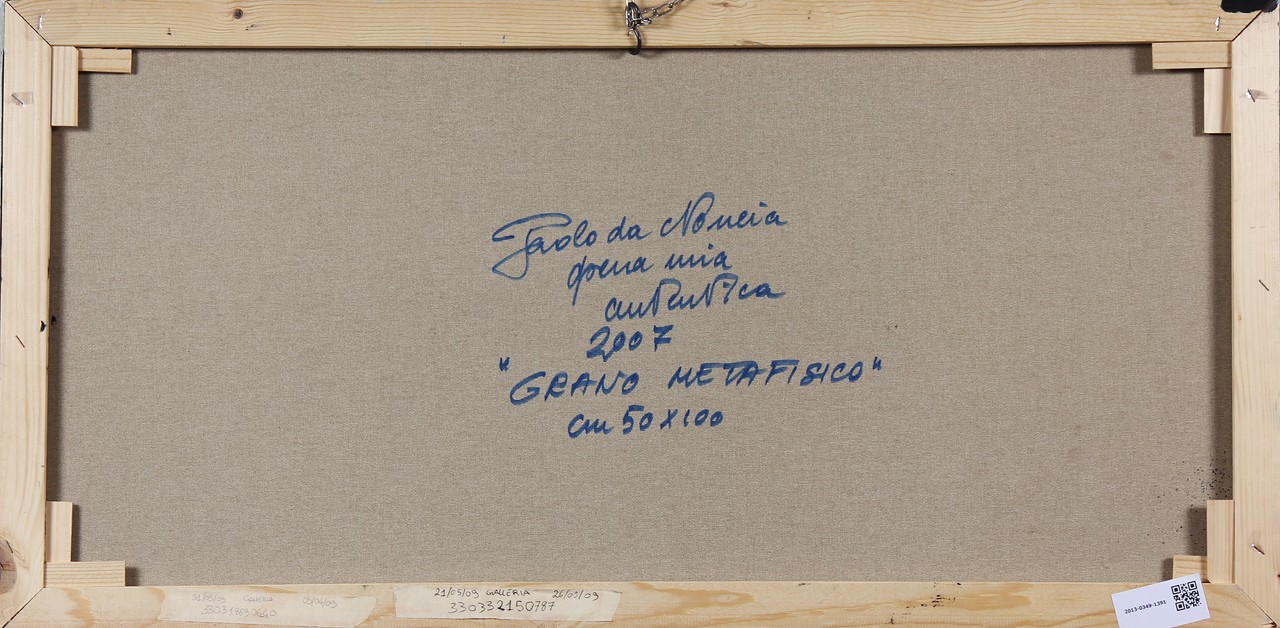 Paolo da Norcia
opera mia
autentica
2007
"GRANO METAFISICO"
cm 50x100
GALLERIA
21/05/09 GALLERIA 26/05/09
330332150787
2013-0349-1391